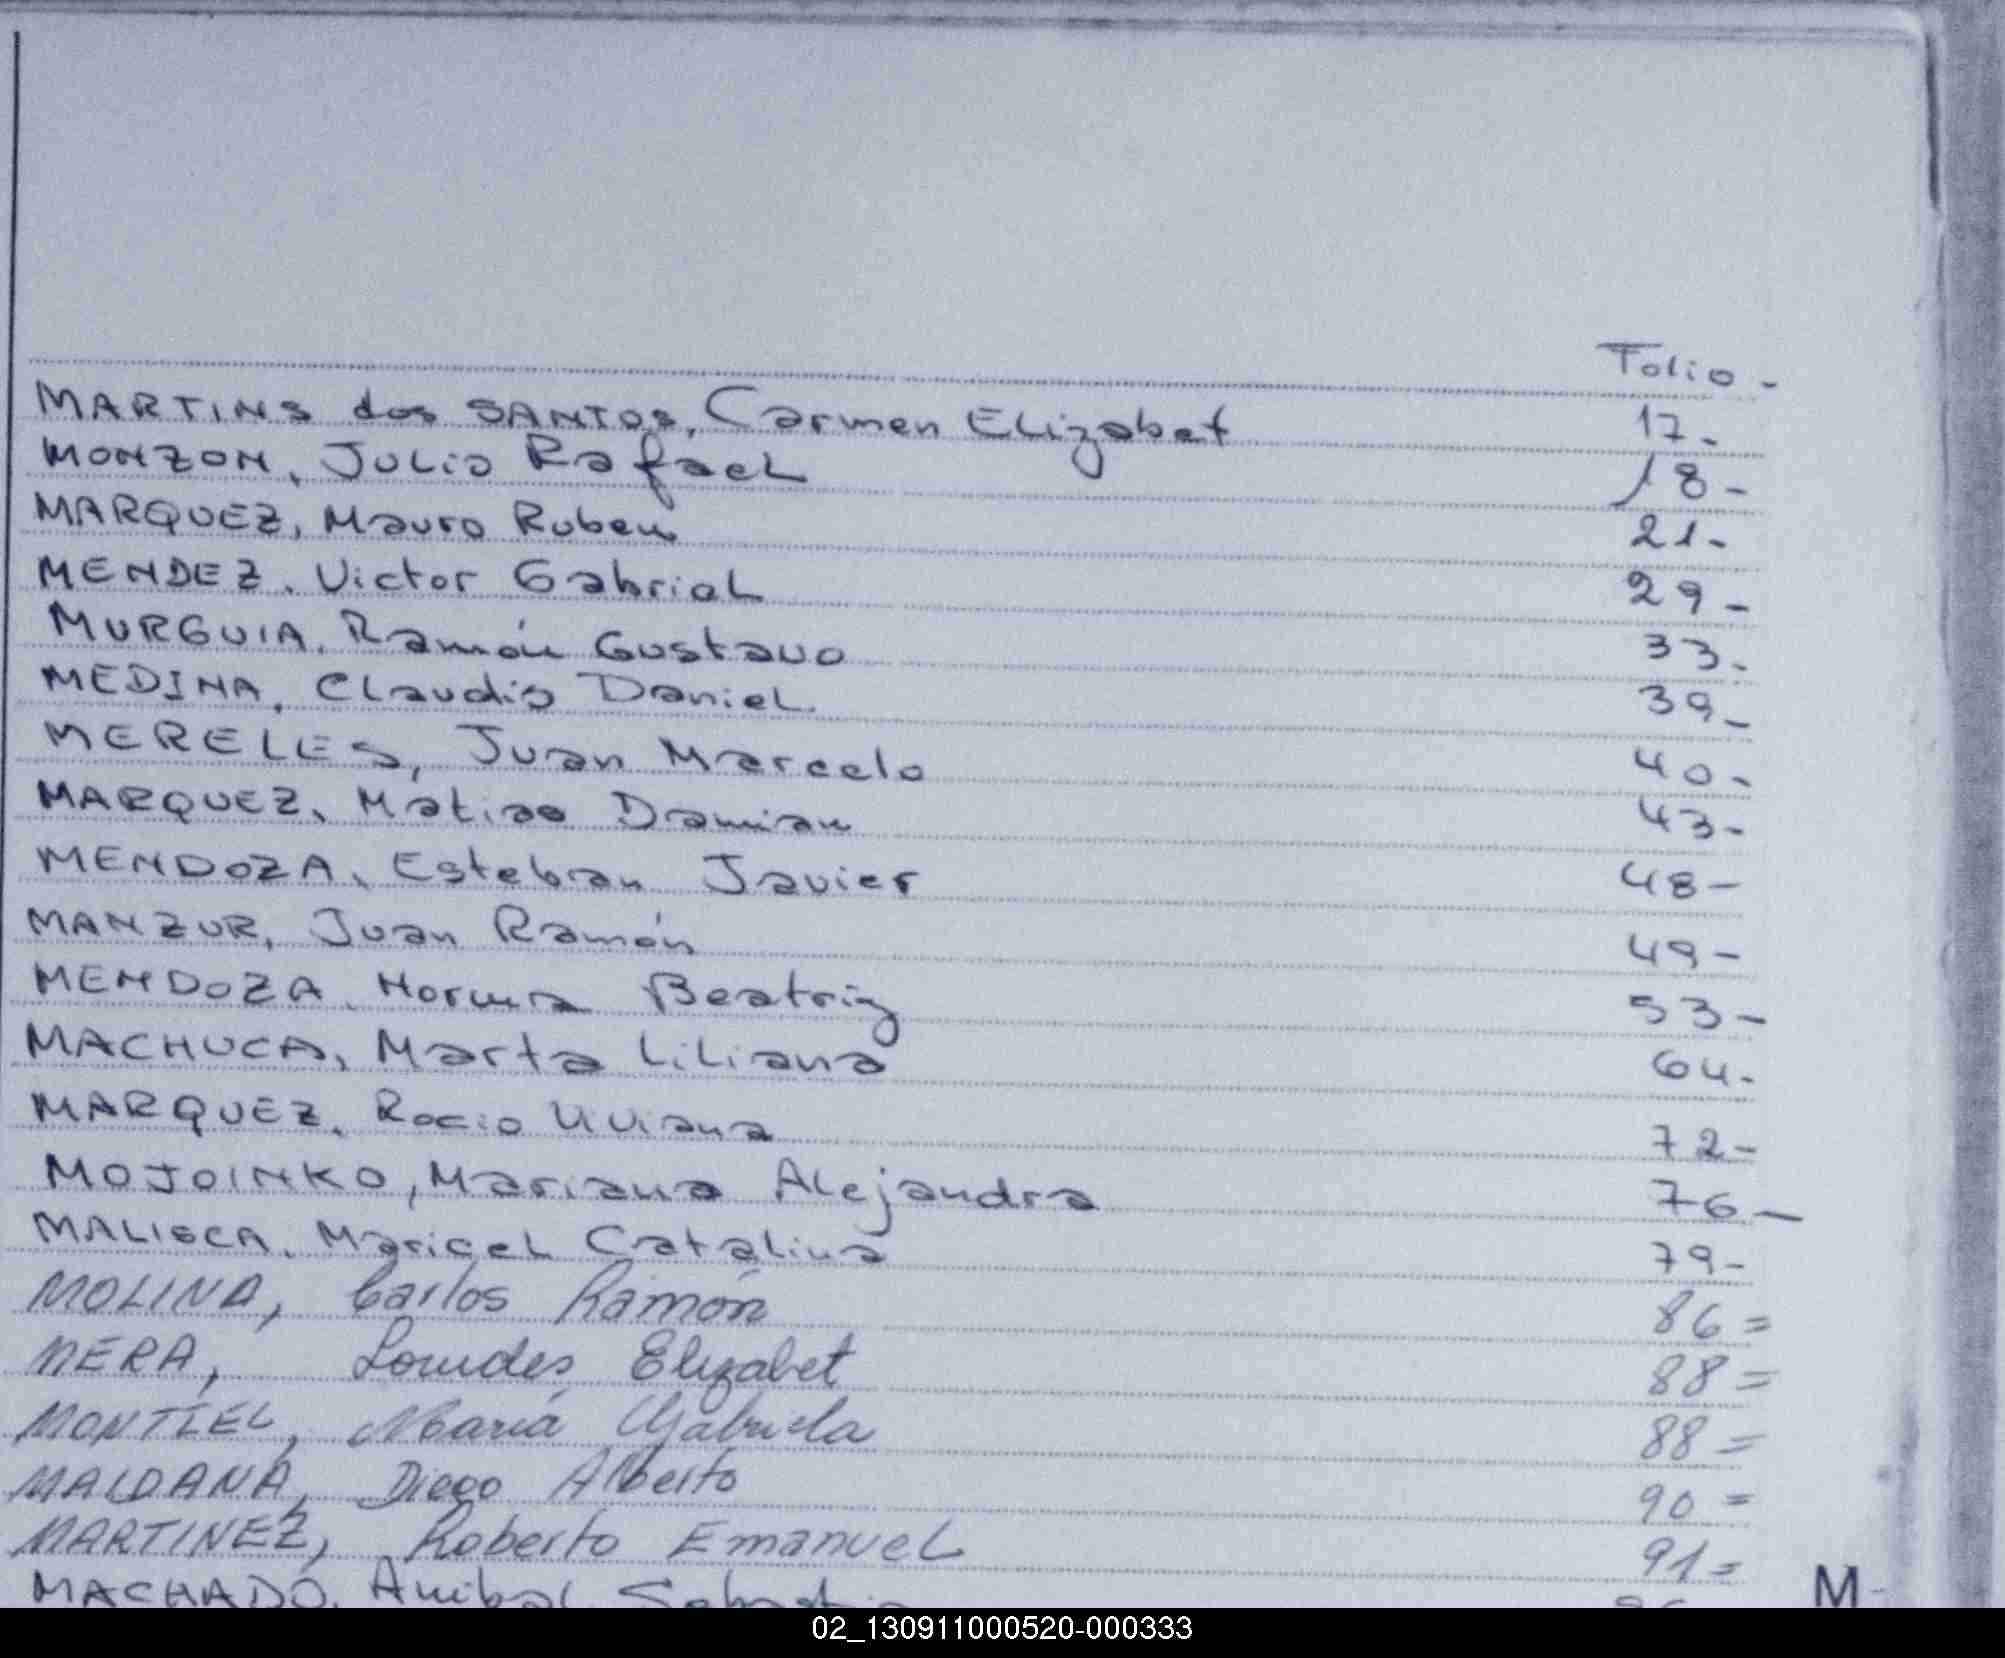 Folio -
MARTINS dos SANTOS, Carmen Elizabet 17-
MONZON, Julio Rafael 18-
MARQUEZ, Mauro Ruben 21-
MENDEZ, Victor Gabriel 29-
MURGUIA, Ramón Gustavo 33-
MEDINA, Claudio Daniel 39-
MERELES, Juan Marcelo 40-
MARQUEZ, Matias Damian 43-
MENDOZA, Esteban Javier 48-
MANZUR, Juan Ramón 49-
MENDOZA, Norma Beatriz 53-
MACHUCA, Marta Liliana 64-
MARQUEZ, Rocio Viviana 72-
MOJOINKO, Mariana Alejandra 76-
MALISCA, Maricel Catalina 79-
MOLINA, Carlos Ramón 86=
MERA, Lourdes Elizabet 88=
MONTIEL, María Gabriela 88=
MALDANA, Diego Alberto 90=
MARTINEZ, Roberto Emanuel 91=
MACHADO, Anibal
M
02_130911000520-000333